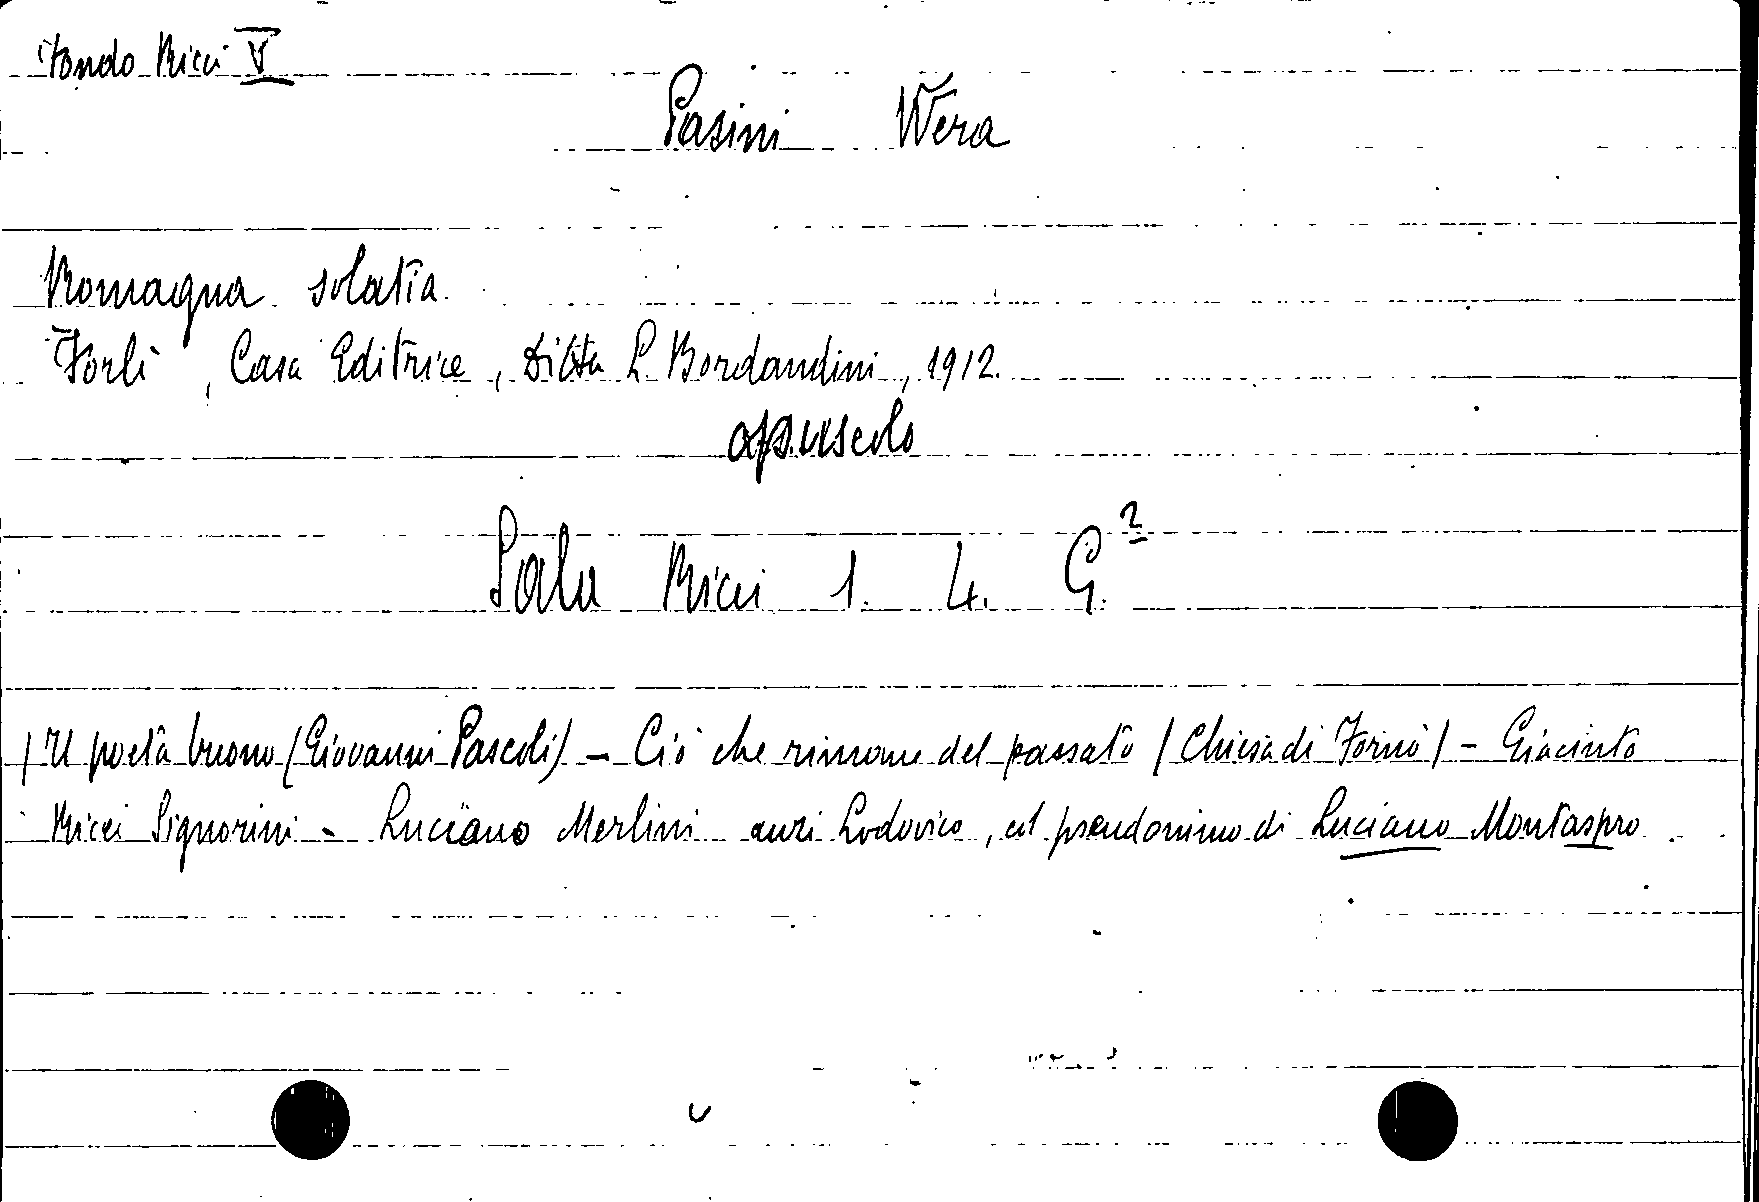 Fondo Ricci V
Pasini Wera
Romagna solatia
Forlì, Casa Editrice, Ditta L. Bordandini, 1912.
opuscolo
Sala Ricci 1. 4. G.2
/ Il poeta buono (Giovanni Pascoli) - Ciò che rimane del passato (Chiesa di Fornò) - Giacinto
Ricci Signorini - Luciano Merlini anzi Lodovico, col pseudonimo di Luciano Montaspro.